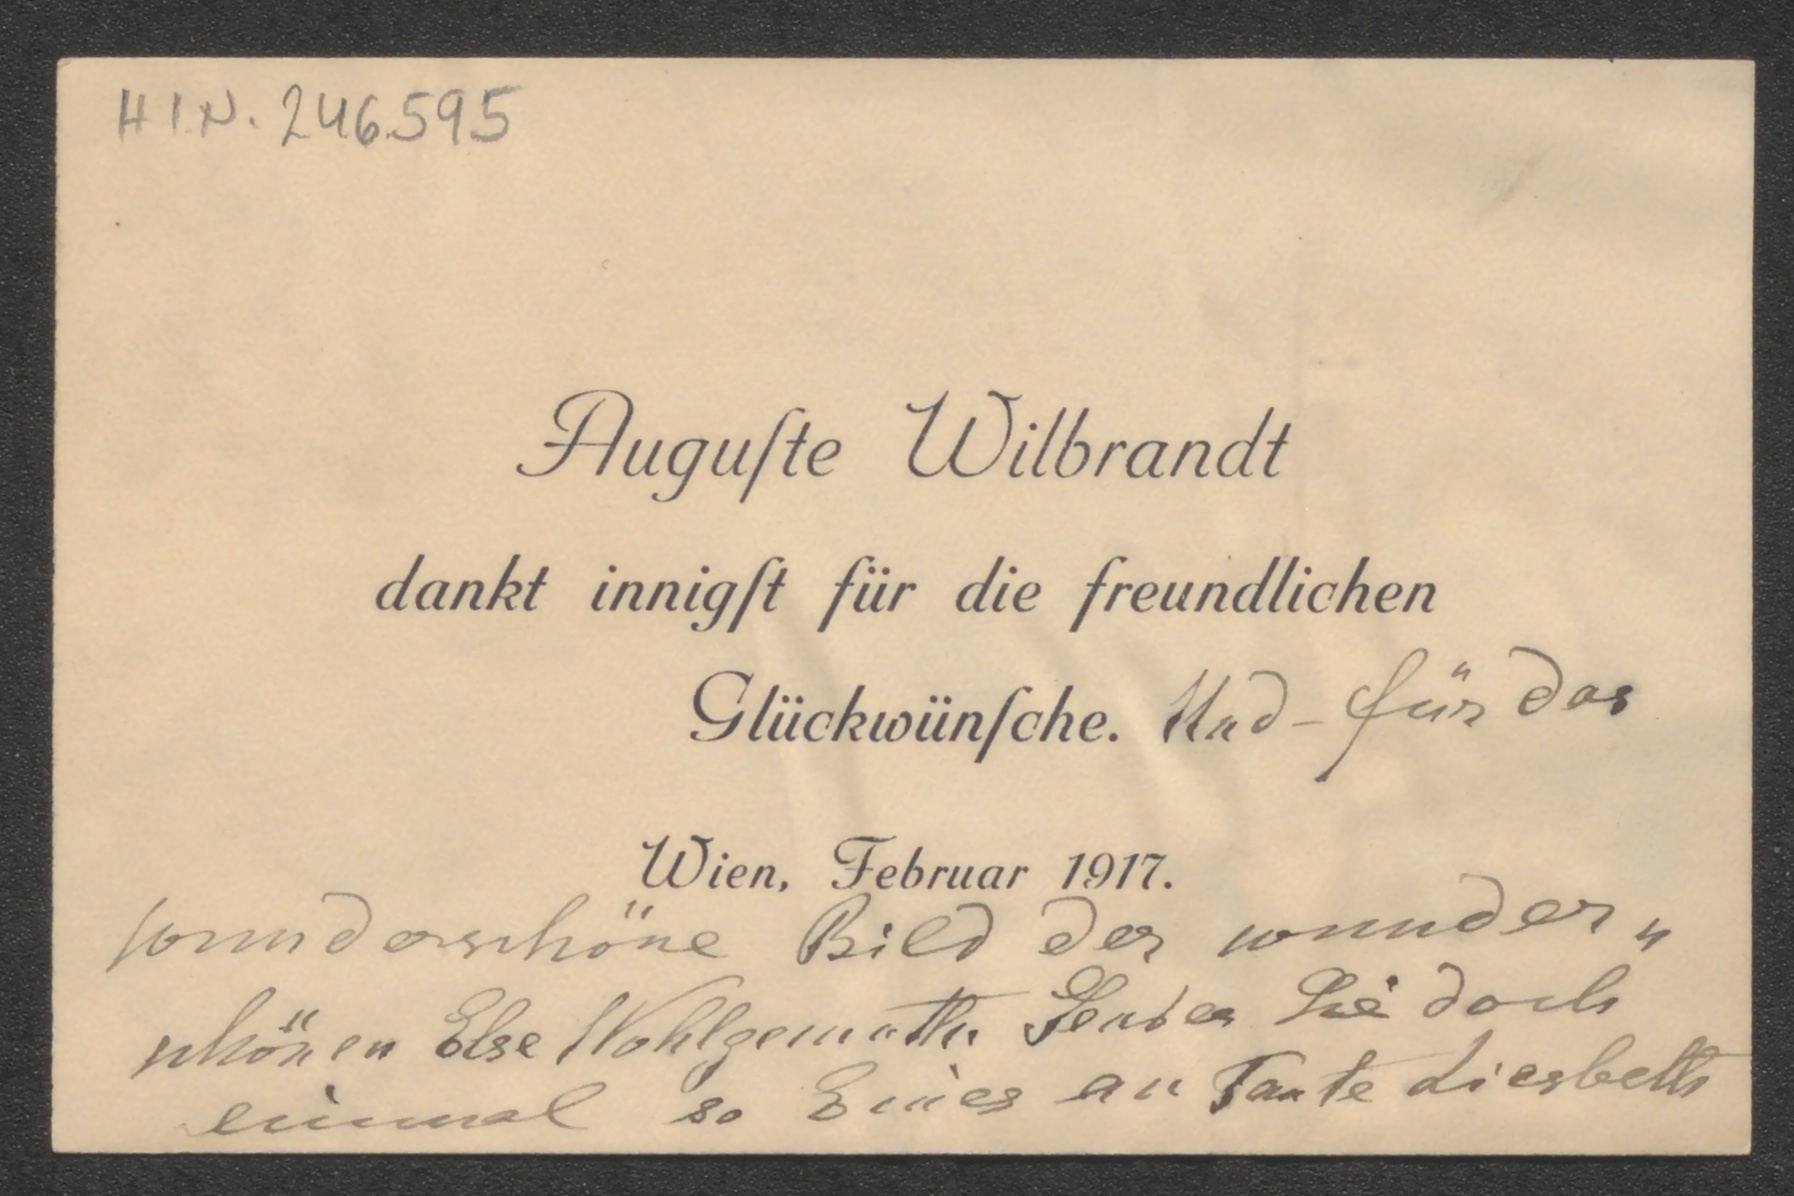 H.I.N. 246.595
Auguſte Wilbrandt
dankt innigſt für die freundlichen
Glückwünſche. Und – für das
Wien, Februar 1917.
wunderschöne Bild der wunder„
schönen Else Wohlgemuth. Senden Sie doch
einmal so Eines an Tante Liesbeth